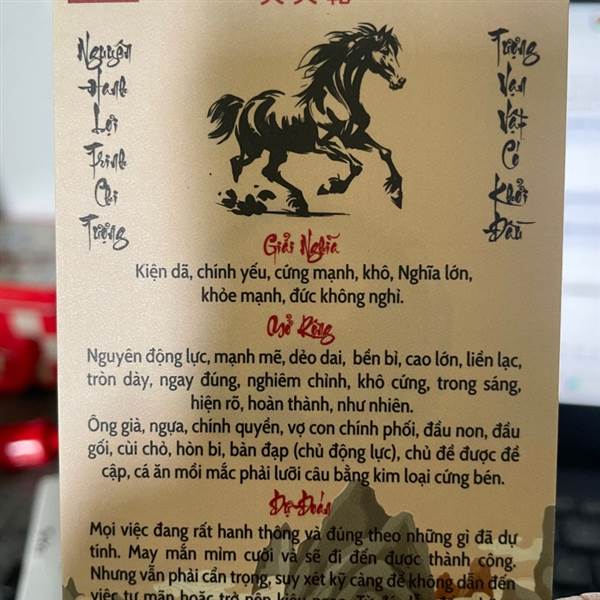 Nguyên
Hanh
Lợi
Trinh
Chi
Tượng
Tượng
Vạn
Vật
Có
Khởi
Đầu
Giải Nghĩa
Kiện dã, chính yếu, cứng mạnh, khô, Nghĩa lớn,
khỏe mạnh, đức không nghỉ.
Mở Rộng
Nguyên động lực, mạnh mẽ, dẻo dai, bền bỉ, cao lớn, liền lạc,
tròn dày, ngay đúng, nghiêm chỉnh, khô cứng, trong sáng,
hiện rõ, hoàn thành, như nhiên.
Ông già, ngựa, chính quyền, vợ con chính phối, đầu non, đầu
gối, cùi chỏ, hòn bi, bàn đạp (chủ động lực), chủ đề được đề
cập, cá ăn mồi mắc phải lưỡi câu bằng kim loại cứng bén.
Dự Đoán
Mọi việc đang rất hanh thông và đúng theo những gì đã dự
tính. May mắn mỉm cười và sẽ đi đến được thành công.
Nhưng vẫn phải cẩn trọng, suy xét kỹ càng để không dẫn đến
việc tự mãn hoặc trở nên kiêu